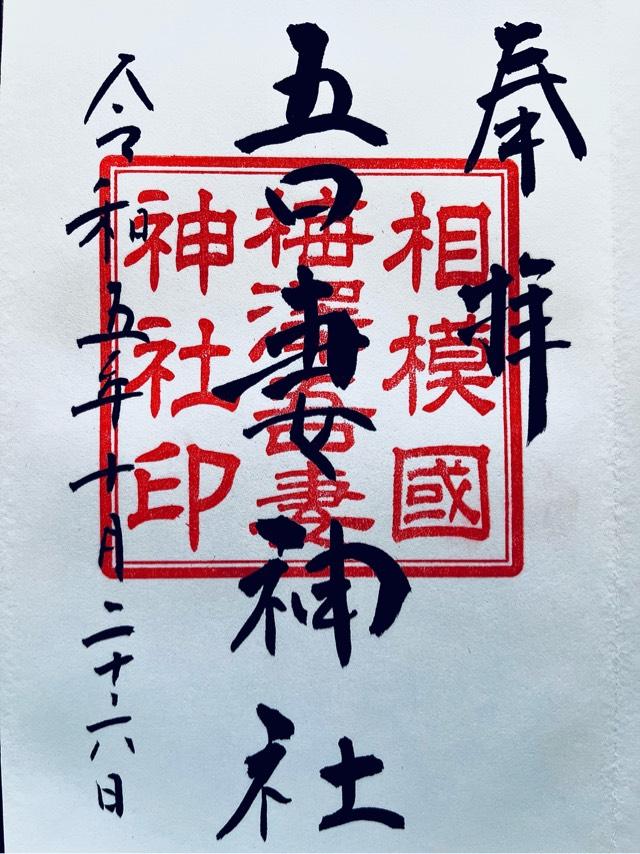 奉拝
相模國
梅澤吾妻
神社印
吾妻神社
令和五年十月二十六日